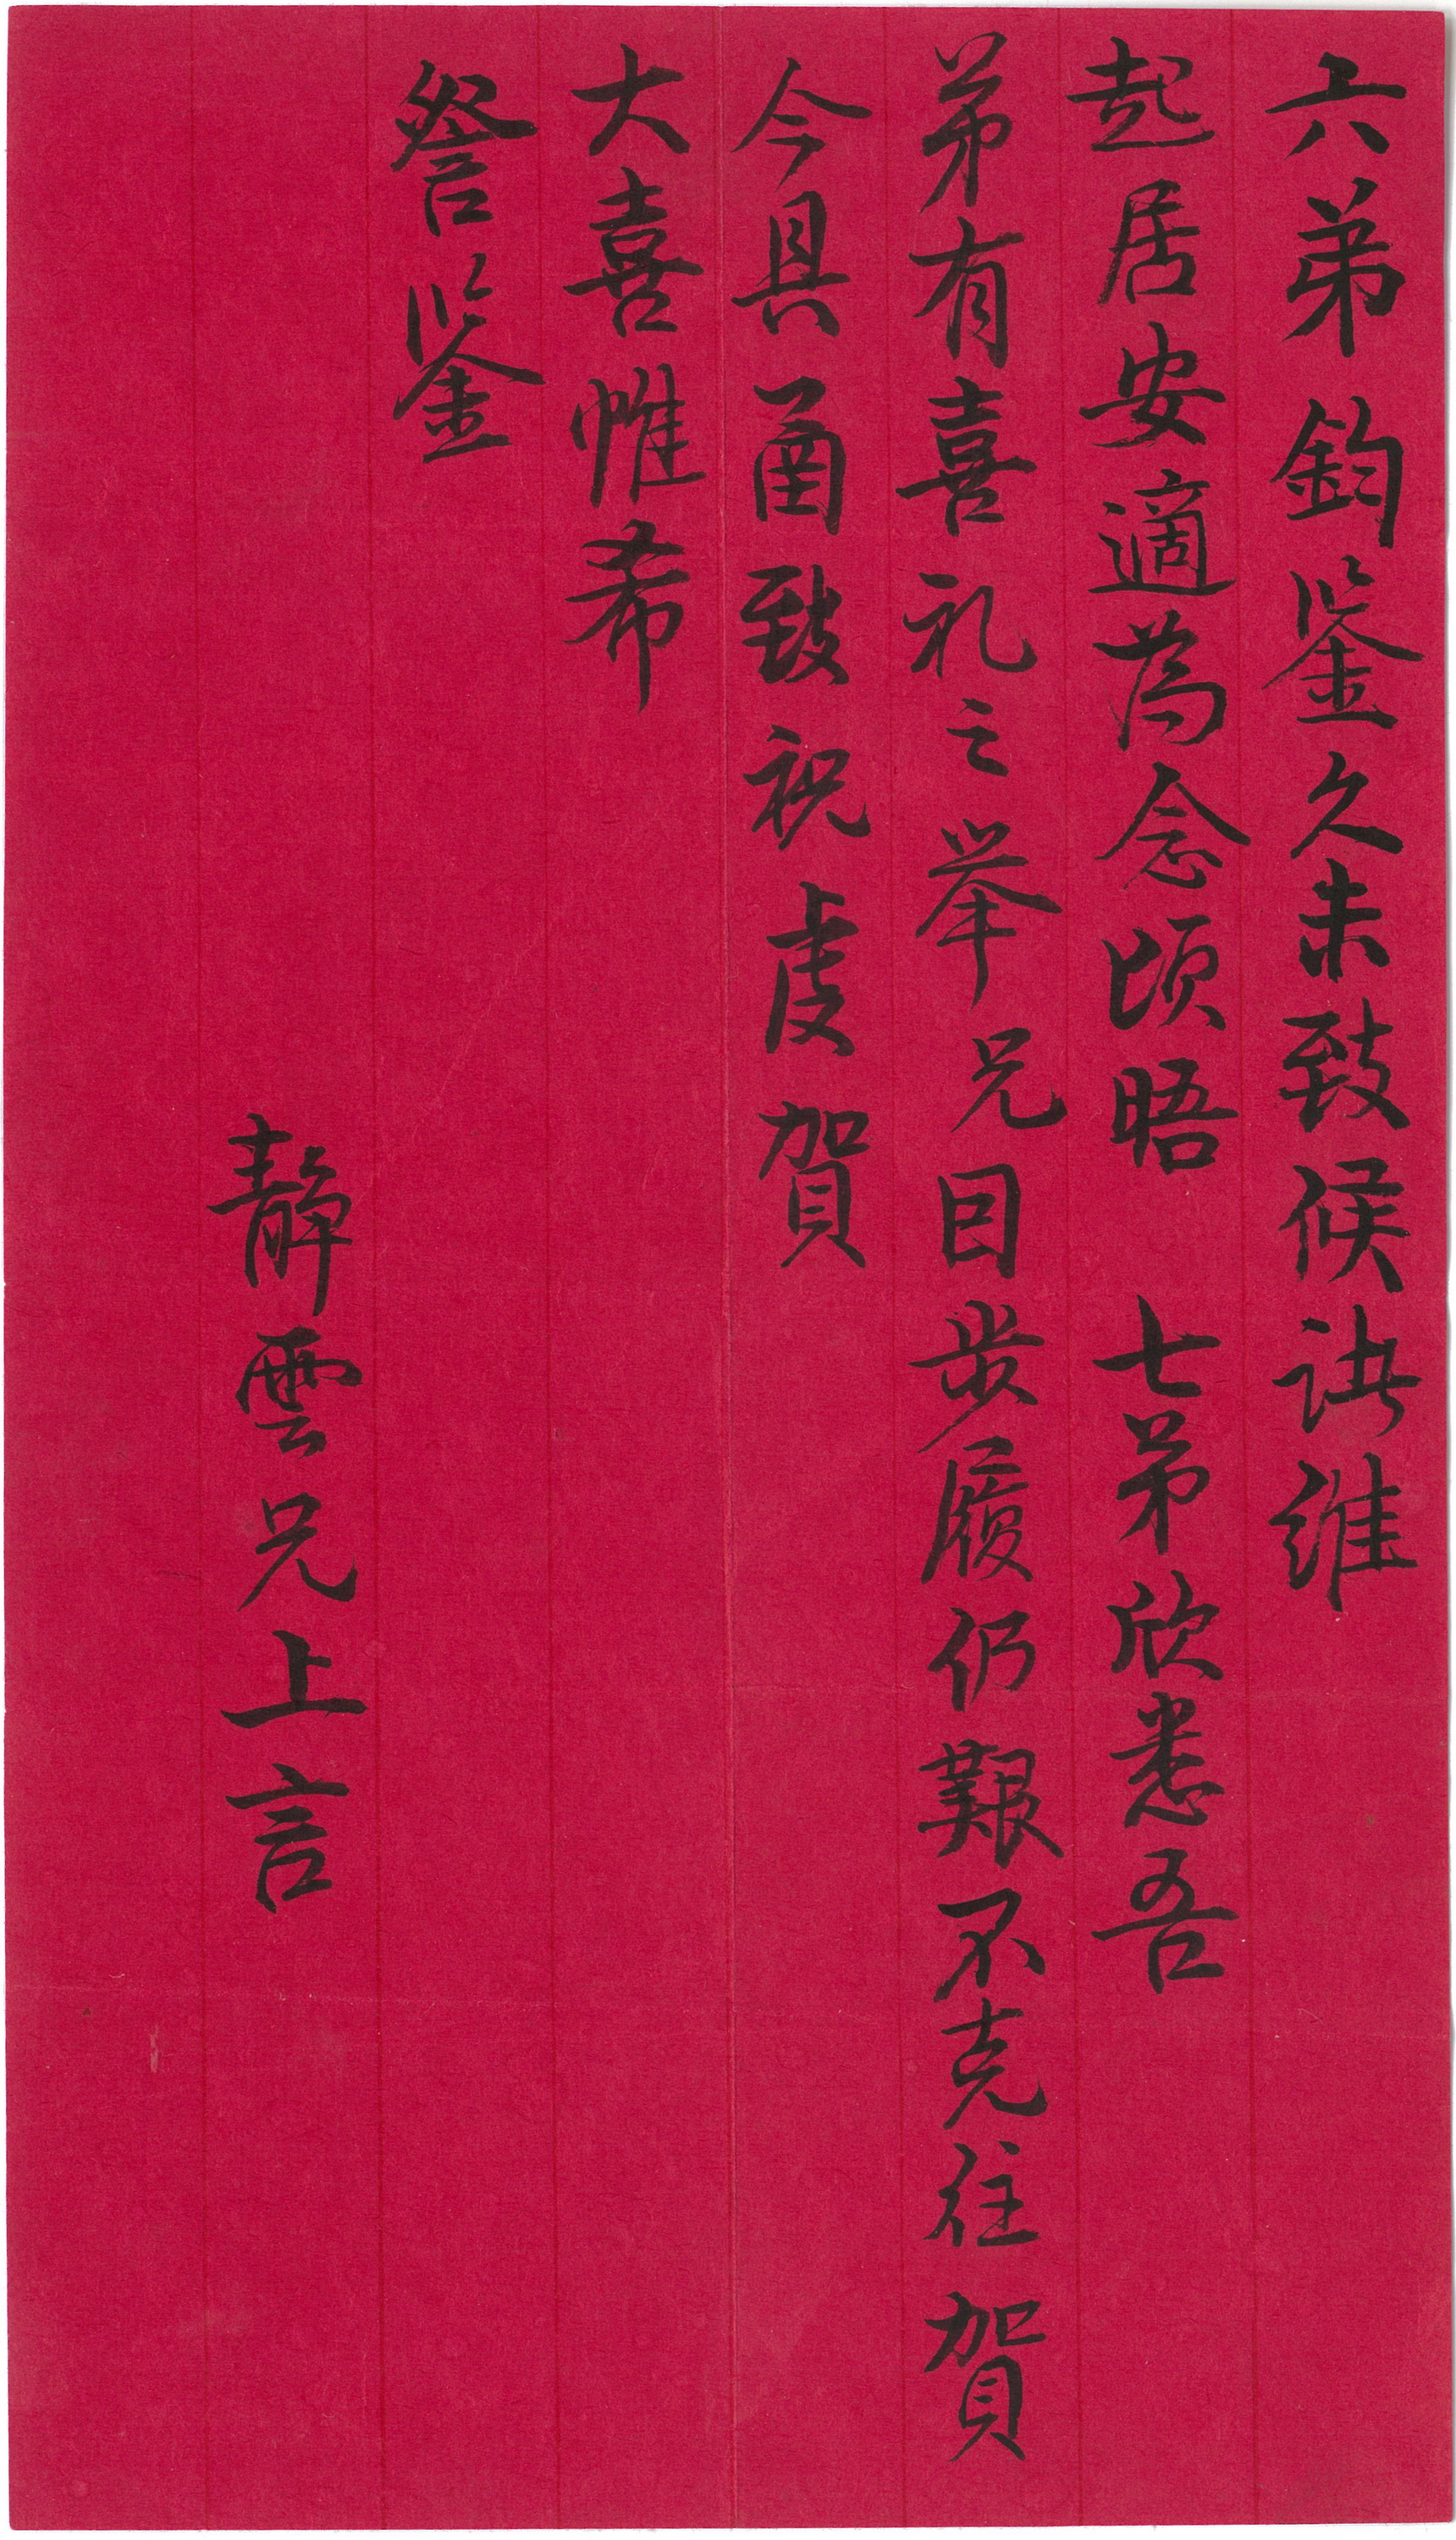 六弟鈞鉴久未致候諸維
起居安適為念頃晤 七弟欣悉吾
弟有喜礼之举兄因步履仍艱不克往賀
今具函致祝虔賀
大喜惟希
詧鉴
靜雲兄上言